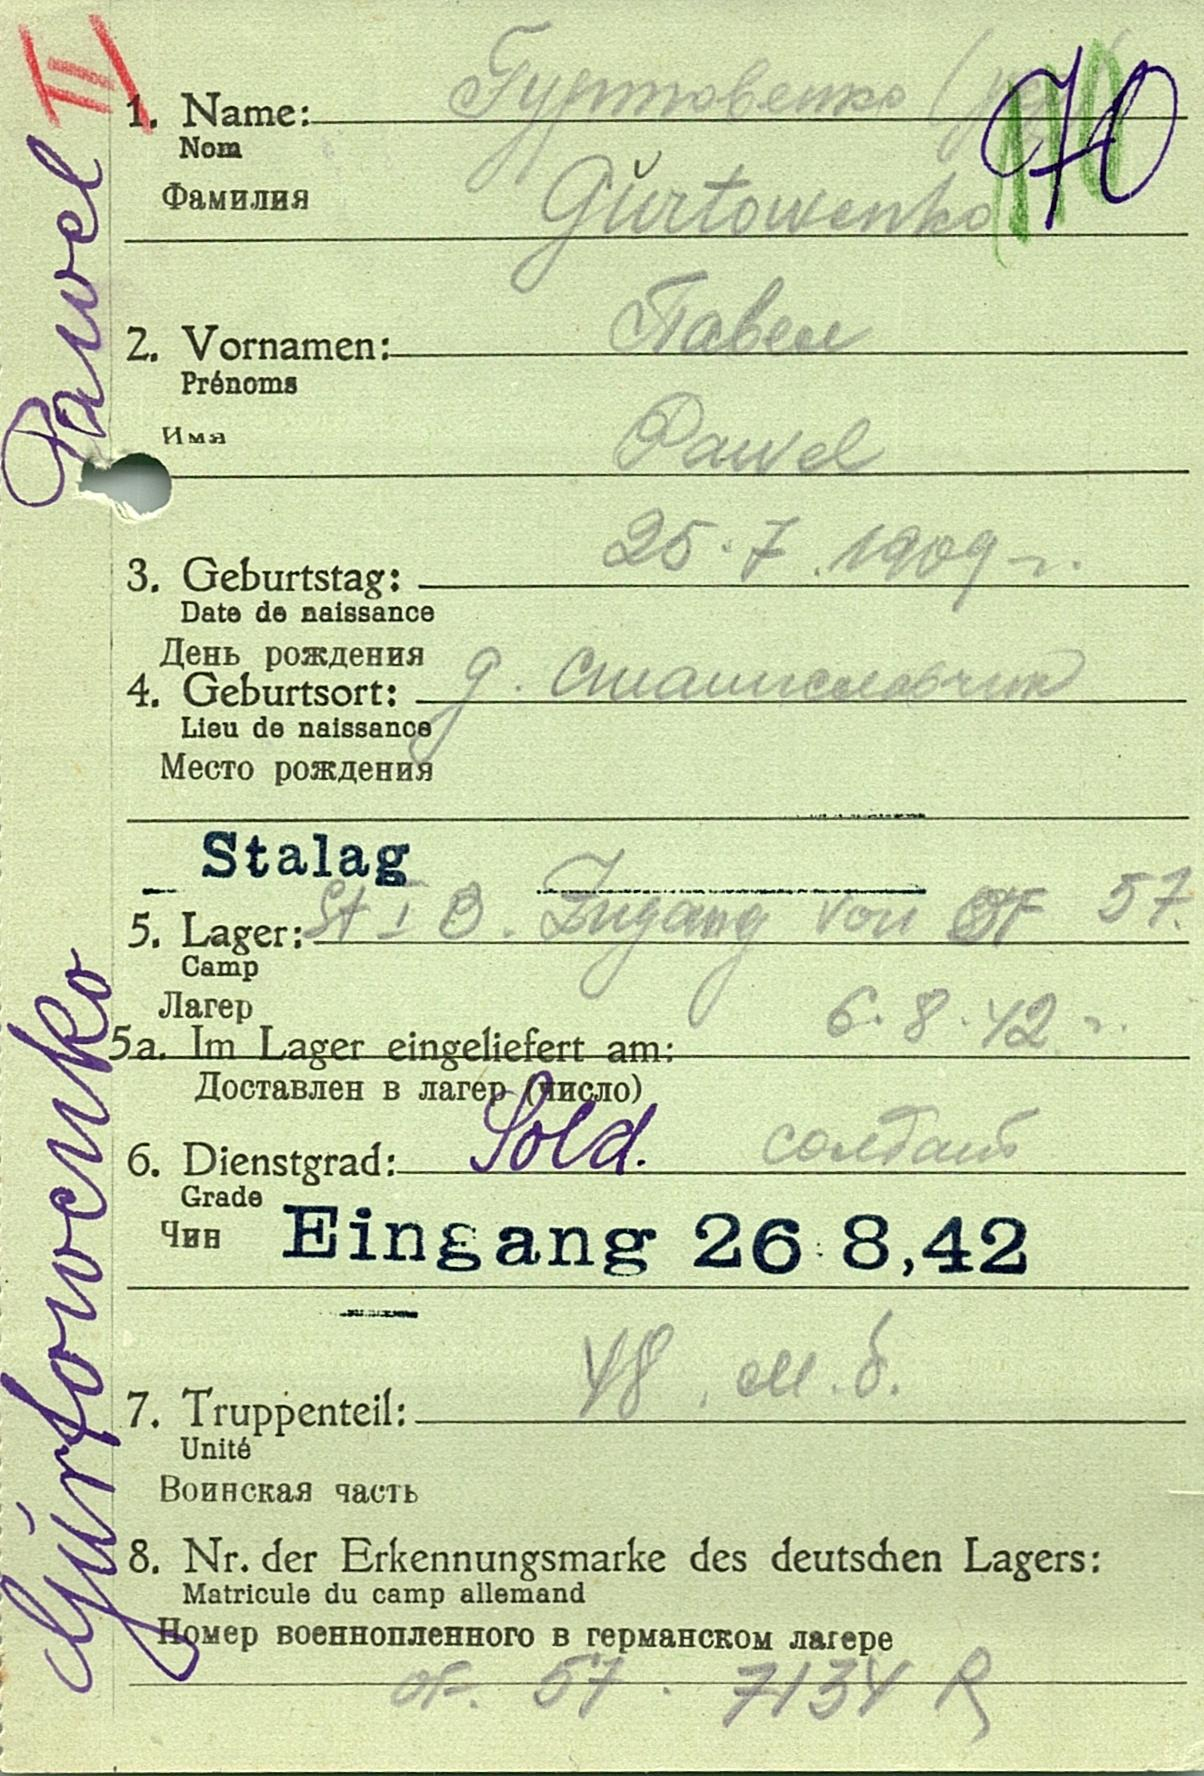 III
70
1. Name: Гуртовенко
Nom
Фамилия
Gŭrtowenko
2. Vornamen: Павел
Prénoms
Имя
Pawel
3. Geburtstag: 25.7.1909 г.
Date de naissance
День рождения
4. Geburtsort: д. Станиславчик
Lieu de naissance
Место рождения
Stalag
5. Lager: St I B. Zugang von OF 57.
Camp
Лагерь
6.8.42 г.
5a. Im Lager eingeliefert am:
Доставлен в лагер (число)
6. Dienstgrad: Sold. солдат
Grade
Чин
Eingang 26 8,42
48. м.б.
7. Truppenteil:
Unité
Воинская часть
8. Nr. der Erkennungsmarke des deutschen Lagers:
Matricule du camp allemand
Номер военнопленного в германском лагере
of. 57. 7134 R
Gŭrtowenko Pawel